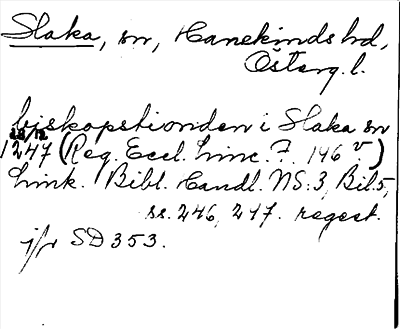 Slaka, sn, Hanekinds hd,
Österg. l.
biskopstionden i Slaka sn
22/12
1247 (Reg. Eccl. Linc. F. 146 v.)
Link. Bibl. Handl. NS: 3, Bil 5,
ss. 246, 247. regest.
jfr SD 353.